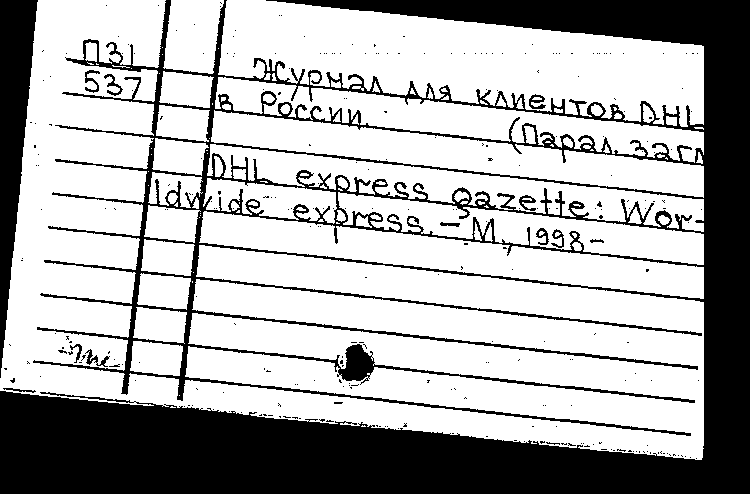 П31
537
Журнал для клиентов DHL
в России.
(Парал. загл
DHL express gazette: Wor-
ldwide express. – М., 1998–